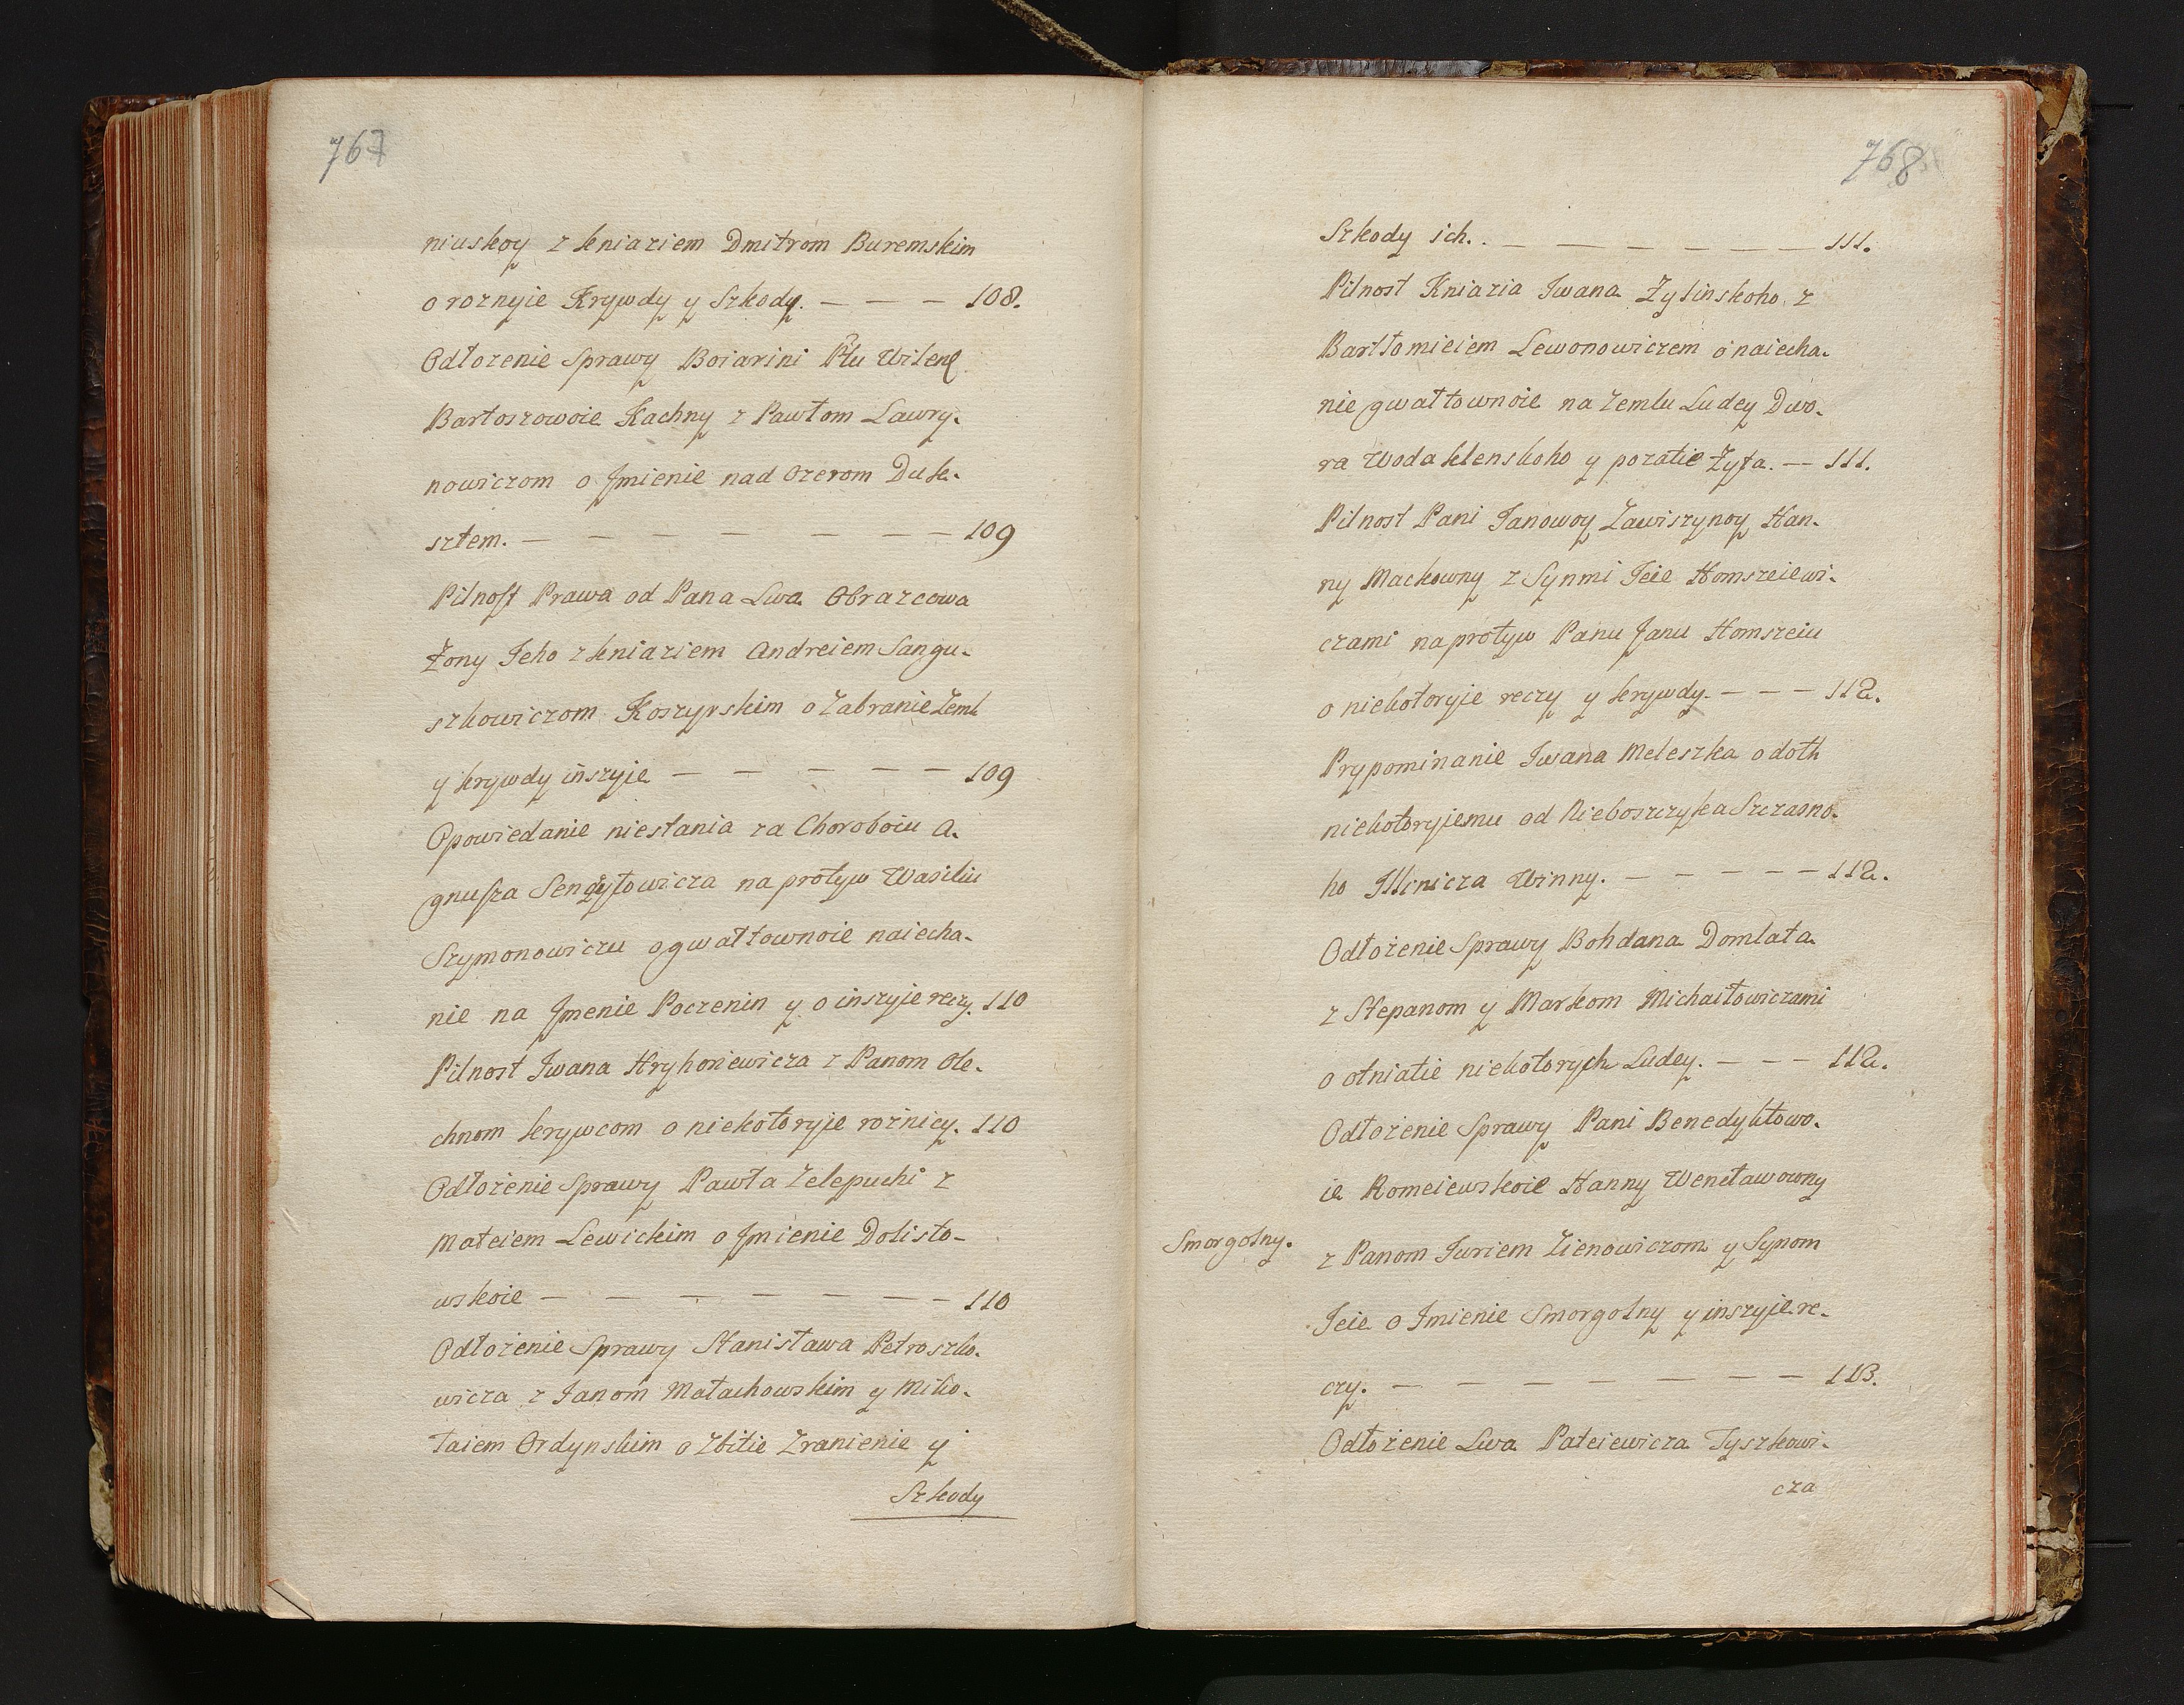 767
niuskoy z kniaziem Dmitrom Buremskim
o roznyie Krywdy y Szkody. — — — 108.
Odłozenie Sprawy Boiarini Płu Wilenſ
Bartoszowoie Kachny z Pawłom Lawry.
nowiczom o Jmienie nad Ozerom Duk.
sztem. — — — — — — — 109
Pilnoſt Prawa od Pana Lwa Obrazcowa
Żony Jeho z kniaziem Andreiem Sangu.
szkowiczom Koszyrskim o Zabranie Zeml
y krywdy inszyie — — — — — 109
Opowiedanie niestania za Choroboiu A.
gnuſza Sengytowicza naprotyw Wasiliu
Szymonowiczu o gwałtownoie naiecha.
nie na Jmenie Poczenin y o inszyie reczy. 110
Pilnost Jwana Hryhoriewicza z Panom Ole.
chnom krywcom o niekotoryie rożnicy. 110
Odłożenie Sprawy Pawła Zelepuchi z
Mateiem Lewickim o Jmienie Dolisto-
wskoie — — — — — — — 110
Odłożenie Sprawy Stanisława Petroszko.
wicza z Janom Małachowskim y Miko.
łaiem Ordynskim o Zbitie Zranienie y
Szkody
768
Szkody ich. . — — — — — — 111.
Pilnost Kniazia Jwana Żylinskoho z
Bartłomieiem Lewonowiczem o naiecha.
nie gwałtownoie na Zemlu Ludey Dwo.
ra Wodaklenskoho y pozatie Żyta. — 111.
Pilnost Pani Janowoy Zawiszynoy Han.
ny Mackowny z Synmi Jeie Homszeiewi.
czami naprotyw Panu Janu Homszeiu
o niekotoryie reczy y krywdy. — — — 112.
Prypominanie Jwana Meleszka o dołh
niekotoryiemu od Nieboszczyka Szczasno.
ho Jllinicza Winny. — — — — — 112.
Odłożenie Sprawy Bohdana Domlata
z Stepanom y Markom Michaiłowiczami
o otniatie niekotorych Ludey. — — — 112.
Odłożenie Sprawy Pani Benedyktowo.
ie Romeiewskoie Hanny Wencławowny
Smorgolny.
z Panom Juriem Zienowiczom y Synom
Jeie o Jmienie Smorgolny y inszyie re.
czy. — — — — — — — — 113.
Odłożenie Lwa Pateiewicza Tyszkowi.
cza